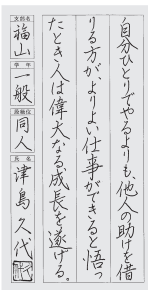 自分ひとりでやるよりも、他人の助けを借
りる方が、よりよい仕事ができると悟っ
たとき人は偉大なる成長を遂げる。
支部名
福山
学年
一般
段級位
同人
氏名
津島久代